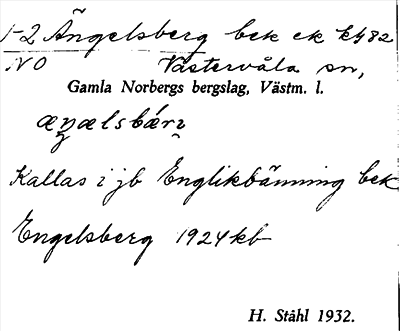 1-2 Ängelsberg bek ek kf 82
NO Västervåla sn,
Gamla Norbergs bergslag, Västm. l.
æŋælsbærı
Kallas i jb Englikbänning bek
Engelsberg 1924 kb
H. Ståhl 1932.